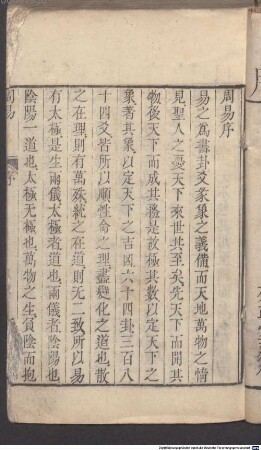 周易序
易之為書卦爻彖象之義備而天地萬物之情
見聖人之憂天下來世其至矣先天下而開其
物後天下而成其務是故極其數以定天下之
象著其象以定天下之吉凶六十四卦三百八
十四爻皆所以順性命之理盡變化之道也散
之在理則有萬殊統之在道則无二致所以易
有太極是生兩儀太極者道也兩儀者陰陽也
陰陽一道也太極无極也萬物之生負陰而抱
周易
序